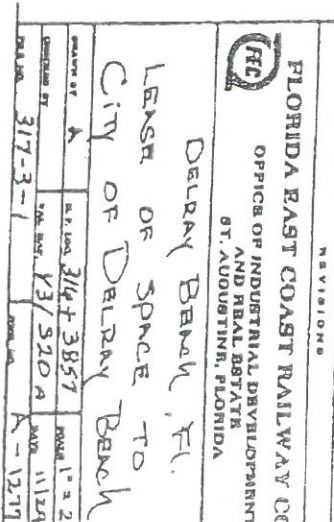 REVISIONS
FLORIDA EAST COAST RAILWAY CO
FEC
OFFICE OF INDUSTRIAL DEVELOPMENT
AND REAL ESTATE
ST. AUGUSTINE, FLORIDA
DELRAY BEACH, FL.
LEASE OF SPACE TO
CITY OF DELRAY BEACH
DRAWN BY A
M.P. LOC. 316 + 3857
SCALE 1" = 2
CHECKED BY
VAL. MAP. V31/S20A
DATE 11/29
317-3-1
A-1277